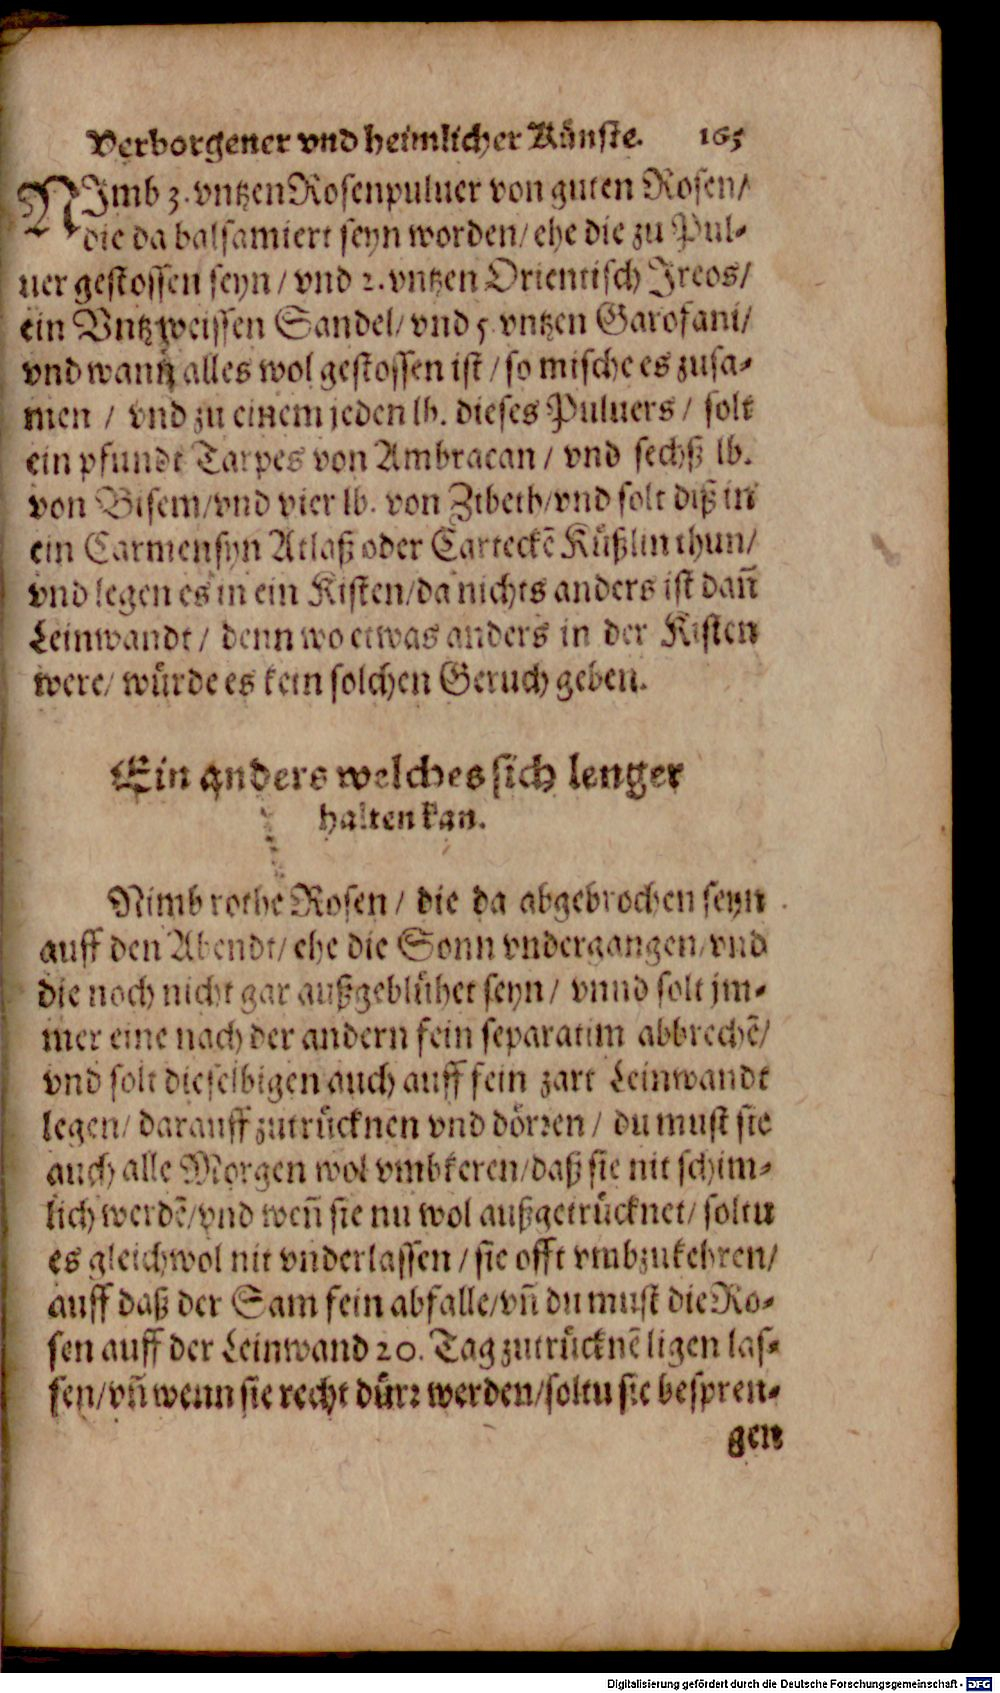 Verborgener vnd heimlicher Künste. 165
NJmb 3. vntzen Rosenpuluer von guten Rosen/
die da balsamiert seyn worden/ ehe die zu Pul-
uer gestossen seyn / vnd 2. vntzen Orientisch Jreos/
ein Vntz weissen Sandel/ vnd 5. vntzen Garofani/
vnd wann alles wol gestossen ist / so mische es zusa-
men / vnd zu einem jeden lb. dieses Puluers / solt
ein pfundt Tarpes von Ambracan / vnd sechß lb.
von Bisem/ vnd vier lb. von Zibeth/ vnd solt diß in
ein Carmensyn Atlaß oder Carteckẽ Küßlin thun/
vnd legen es in ein Kisten/ da nichts anders ist dañ
Leinwandt / denn wo etwas anders in der Kisten
were/ würde es kein solchen Geruch geben.
Ein anders welches sich lenger
halten kan.
Nimb rothe Rosen / die da abgebrochen seyn
auff den Abendt/ ehe die Sonn vndergangen/ vnd
die noch nicht gar außgeblühet seyn / vnnd solt jm-
mer eine nach der andern fein separatim abbrechẽ/
vnd solt dieselbigen auch auff fein zart Leinwandt
legen/ darauff zutrücknen vnd dörren / du must sie
auch alle Morgen wol vmbkeren/ daß sie nit schim-
lich werdẽ/ vnd weñ sie nu wol außgetrücknet/ soltu
es gleichwol nit vnderlassen / sie offt vmbzukehren/
auff daß der Sam fein abfalle/ vñ du must die Ro-
sen auff der Leinwand 20. Tag zutrücknẽ ligen las-
sen/ vñ wenn sie recht dürr werden/ soltu sie bespren-
gen
Digitalisierung gefördert durch die Deutsche Forschungsgemeinschaft - DFG